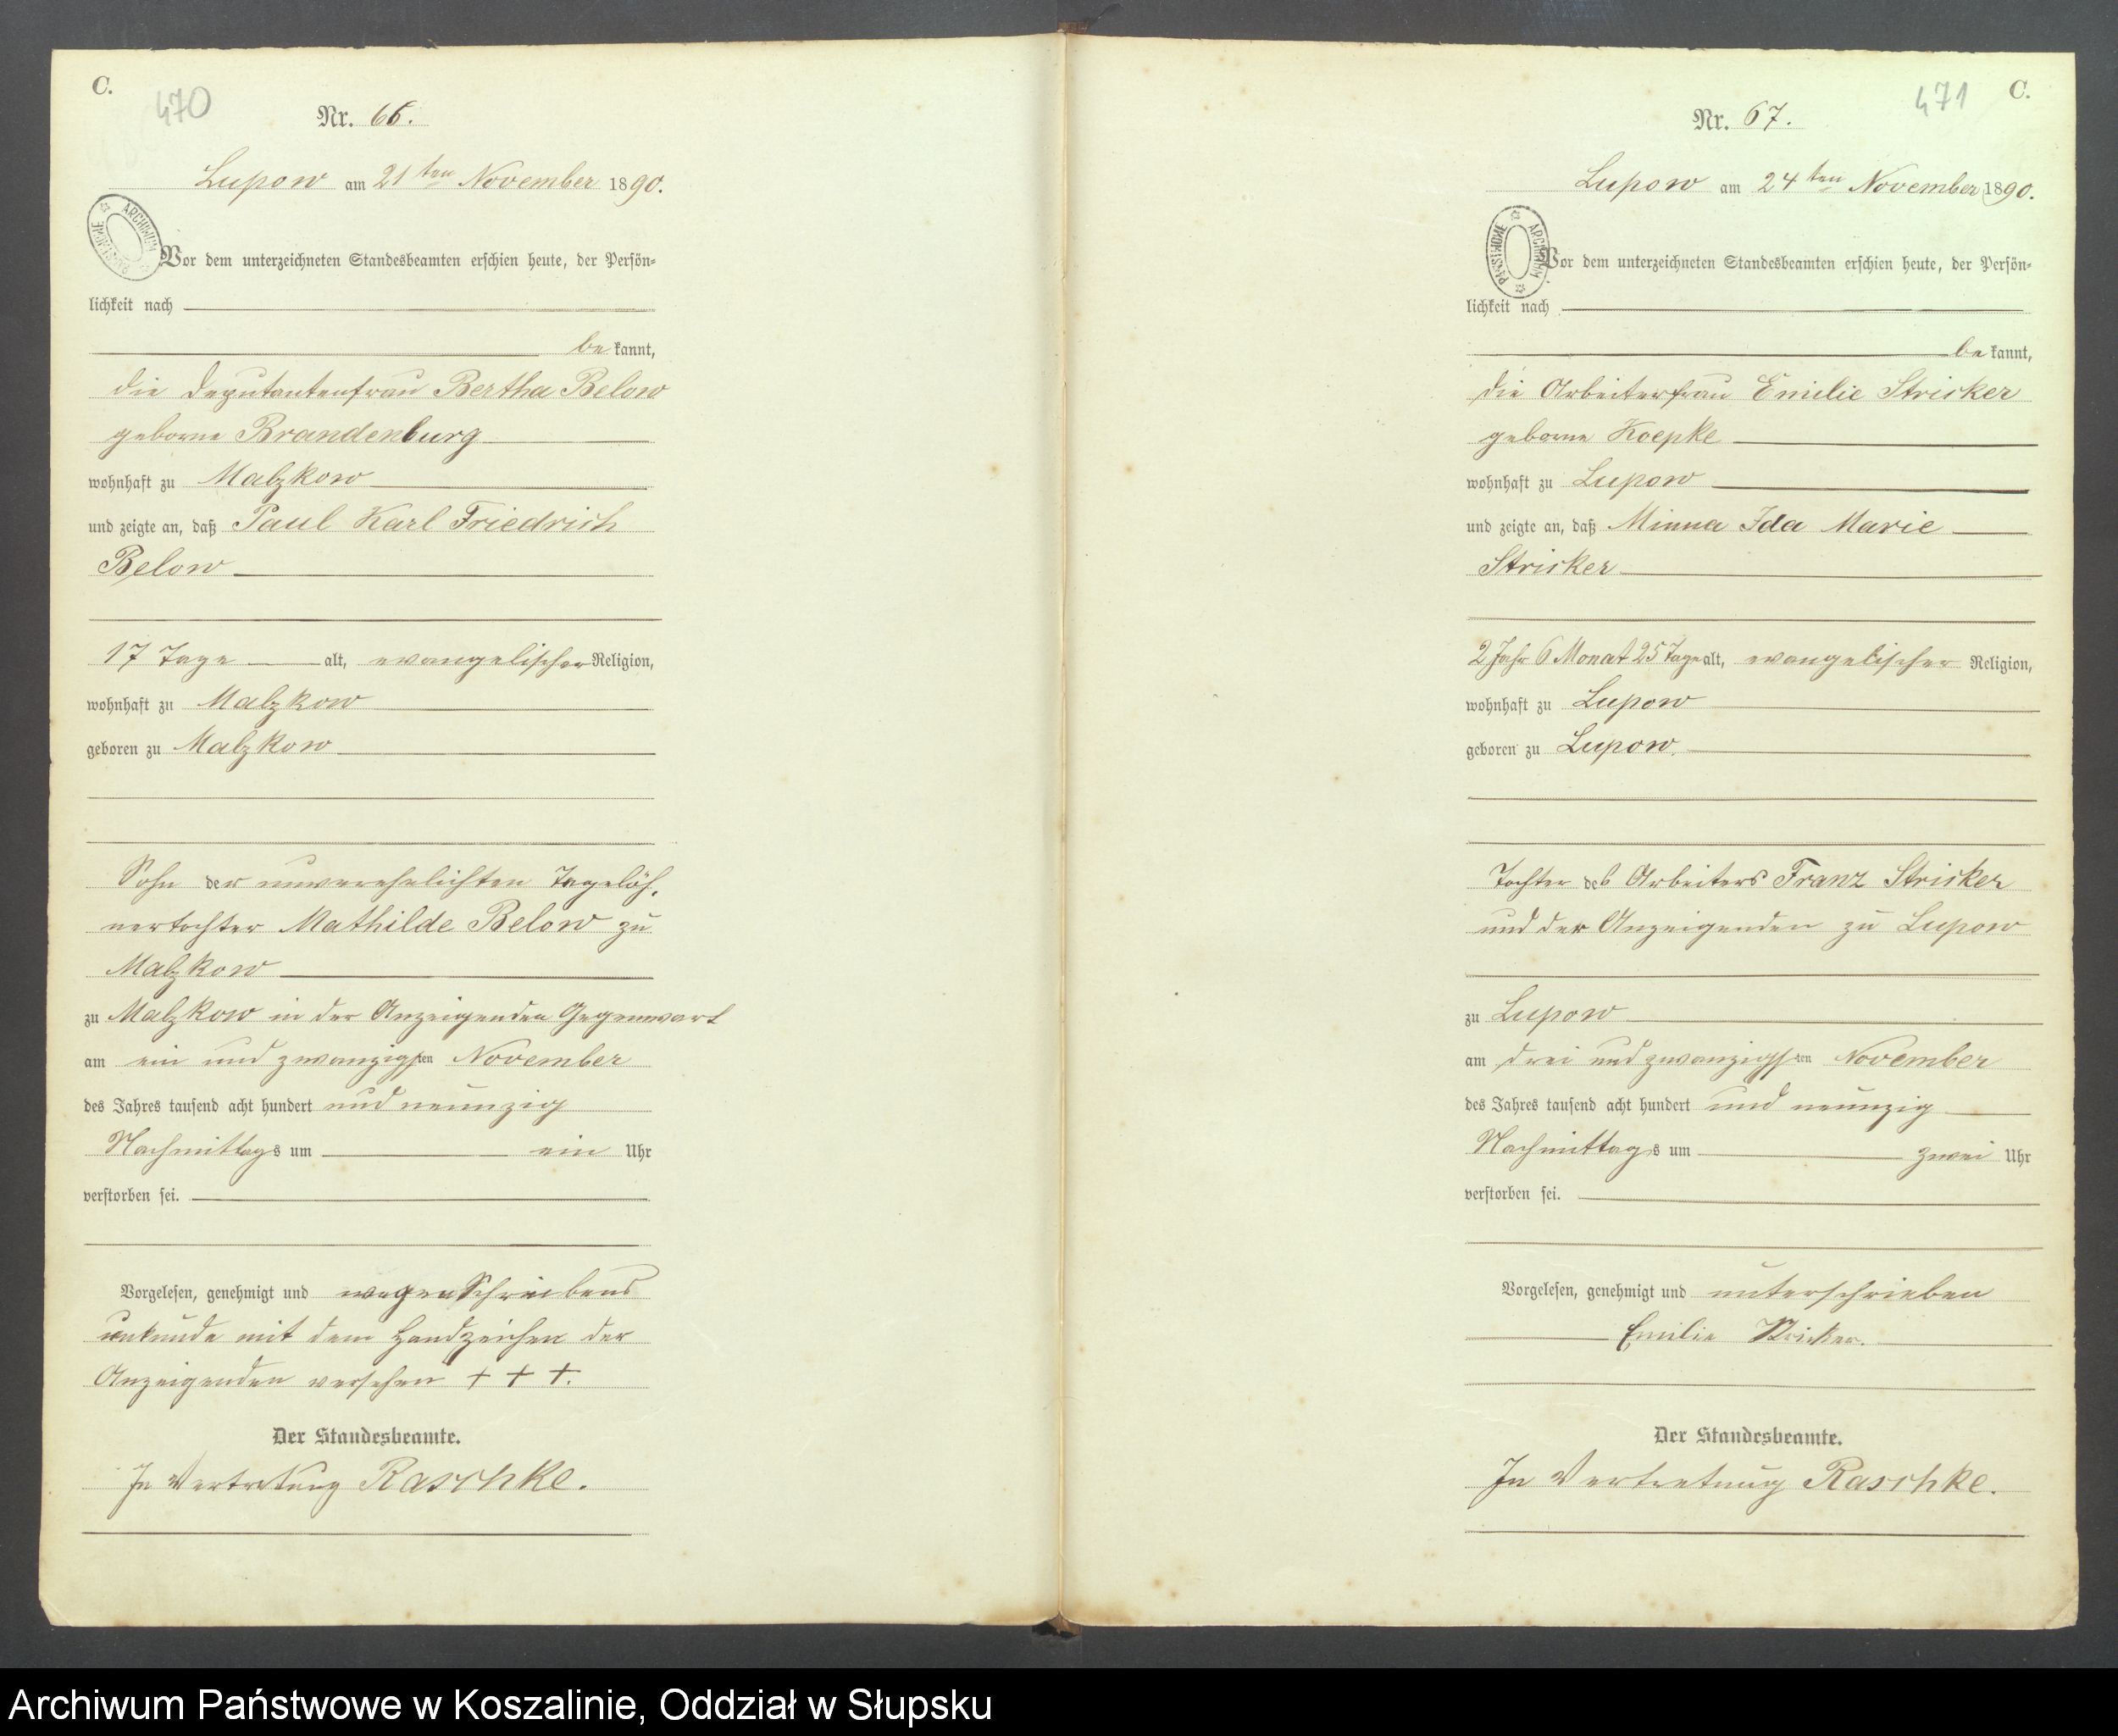 C.
470
Nr. 66.
Lupow am 21ten November 1890.
ARCHIWUM PAŃSTWOWE
Vor dem unterzeichneten Standesbeamten erschien heute, der Persön-
lichkeit nach
be kannt,
die Deputantenfrau Bertha Below
geborne Brandenburg
wohnhaft zu Malzkow
und zeigte an, daß Paul Karl Friedrich
Below
17 Tage alt, evangelischer Religion,
wohnhaft zu Malzkow
geboren zu Malzkow
Sohn der unverehelichten Tagelöh-
nertochter Mathilde Below zu
Malzkow
zu Malzkow in der Anzeigenden Gegenwart
am ein und zwanzigsten November
des Jahres tausend acht hundert und neunzig
Nachmittags um ein Uhr
verstorben sei.
Vorgelesen, genehmigt und wegen Schreibens
unkunde mit dem Handzeichen der
Anzeigenden versehen + + +.
Der Standesbeamte.
In Vertretung Raschke.
471
C.
Nr. 67.
Lupow am 24ten November 1890.
ARCHIWUM PAŃSTWOWE
Vor dem unterzeichneten Standesbeamten erschien heute, der Persön-
lichkeit nach
be kannt,
die Arbeiterfrau Emilie Stricker
geborne Koepke
wohnhaft zu Lupow
und zeigte an, daß Minna Ida Marie
Stricker
2 Jahr 6 Monat 25 Tage alt, evangelischer Religion,
wohnhaft zu Lupow
geboren zu Lupow.
Tochter des Arbeiters Franz Stricker
und der Anzeigenden zu Lupow
zu Lupow
am drei und zwanzigsten November
des Jahres tausend acht hundert und neunzig
Nachmittags um zwei Uhr
verstorben sei.
Vorgelesen, genehmigt und unterschrieben
Emilie Stricker.
Der Standesbeamte.
In Vertretung Raschke.
Archiwum Państwowe w Koszalinie, Oddział w Słupsku